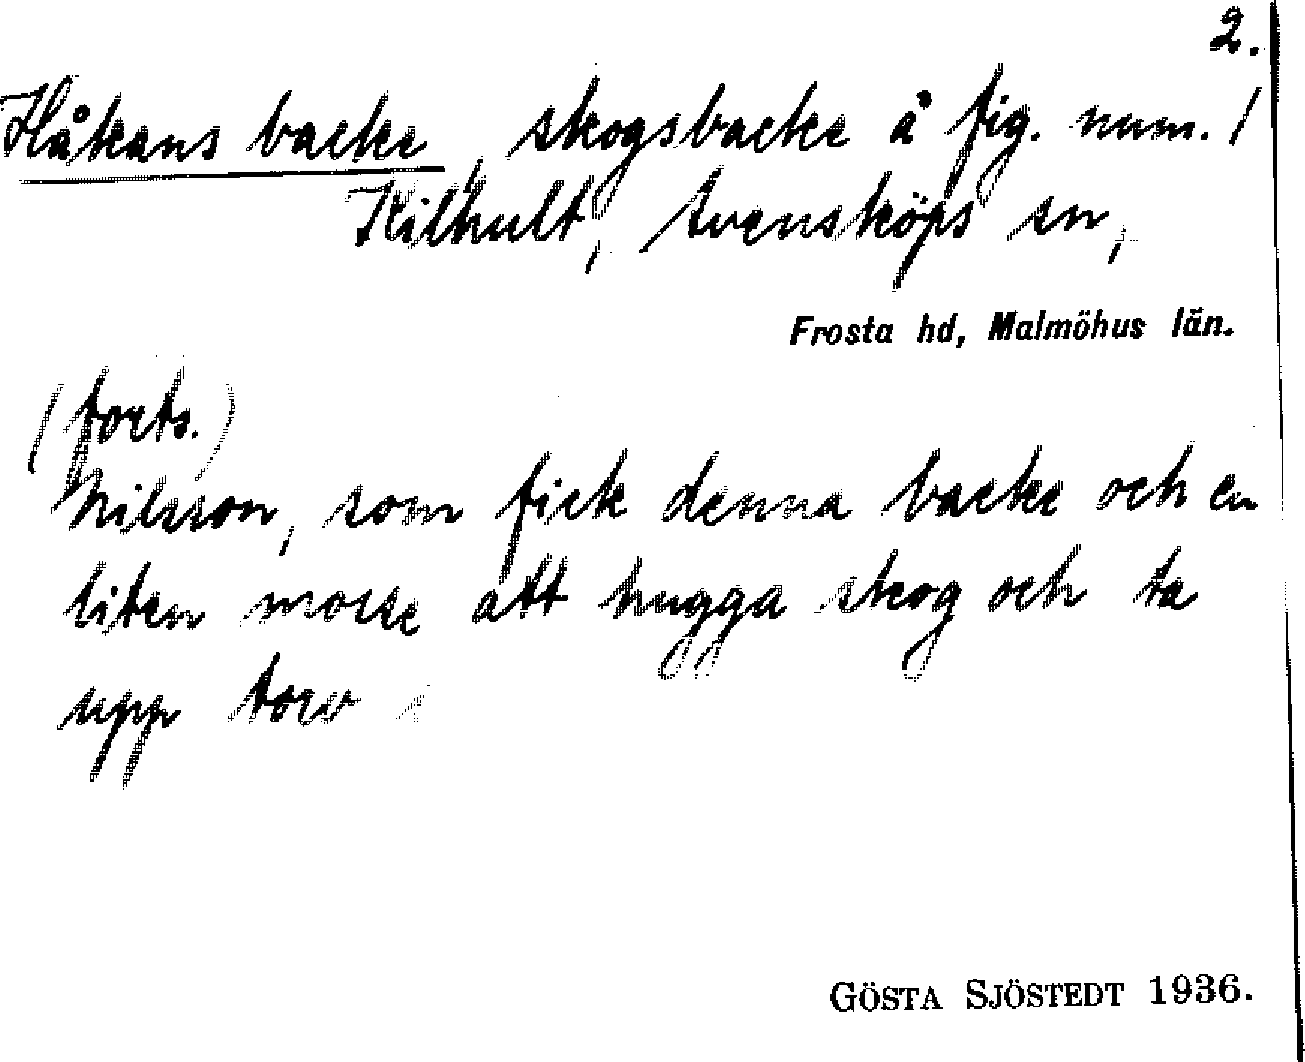 2.
Håkans backe, skogsbacke å fig. num. 1
Kilhult, Svensköps sn,
Frosta hd, Malmöhus län.
(forts.)
Nilsson, som fick denna backe och en
liten mosse att hugga skog och ta
upp torv
GÖSTA SJÖSTEDT 1936.